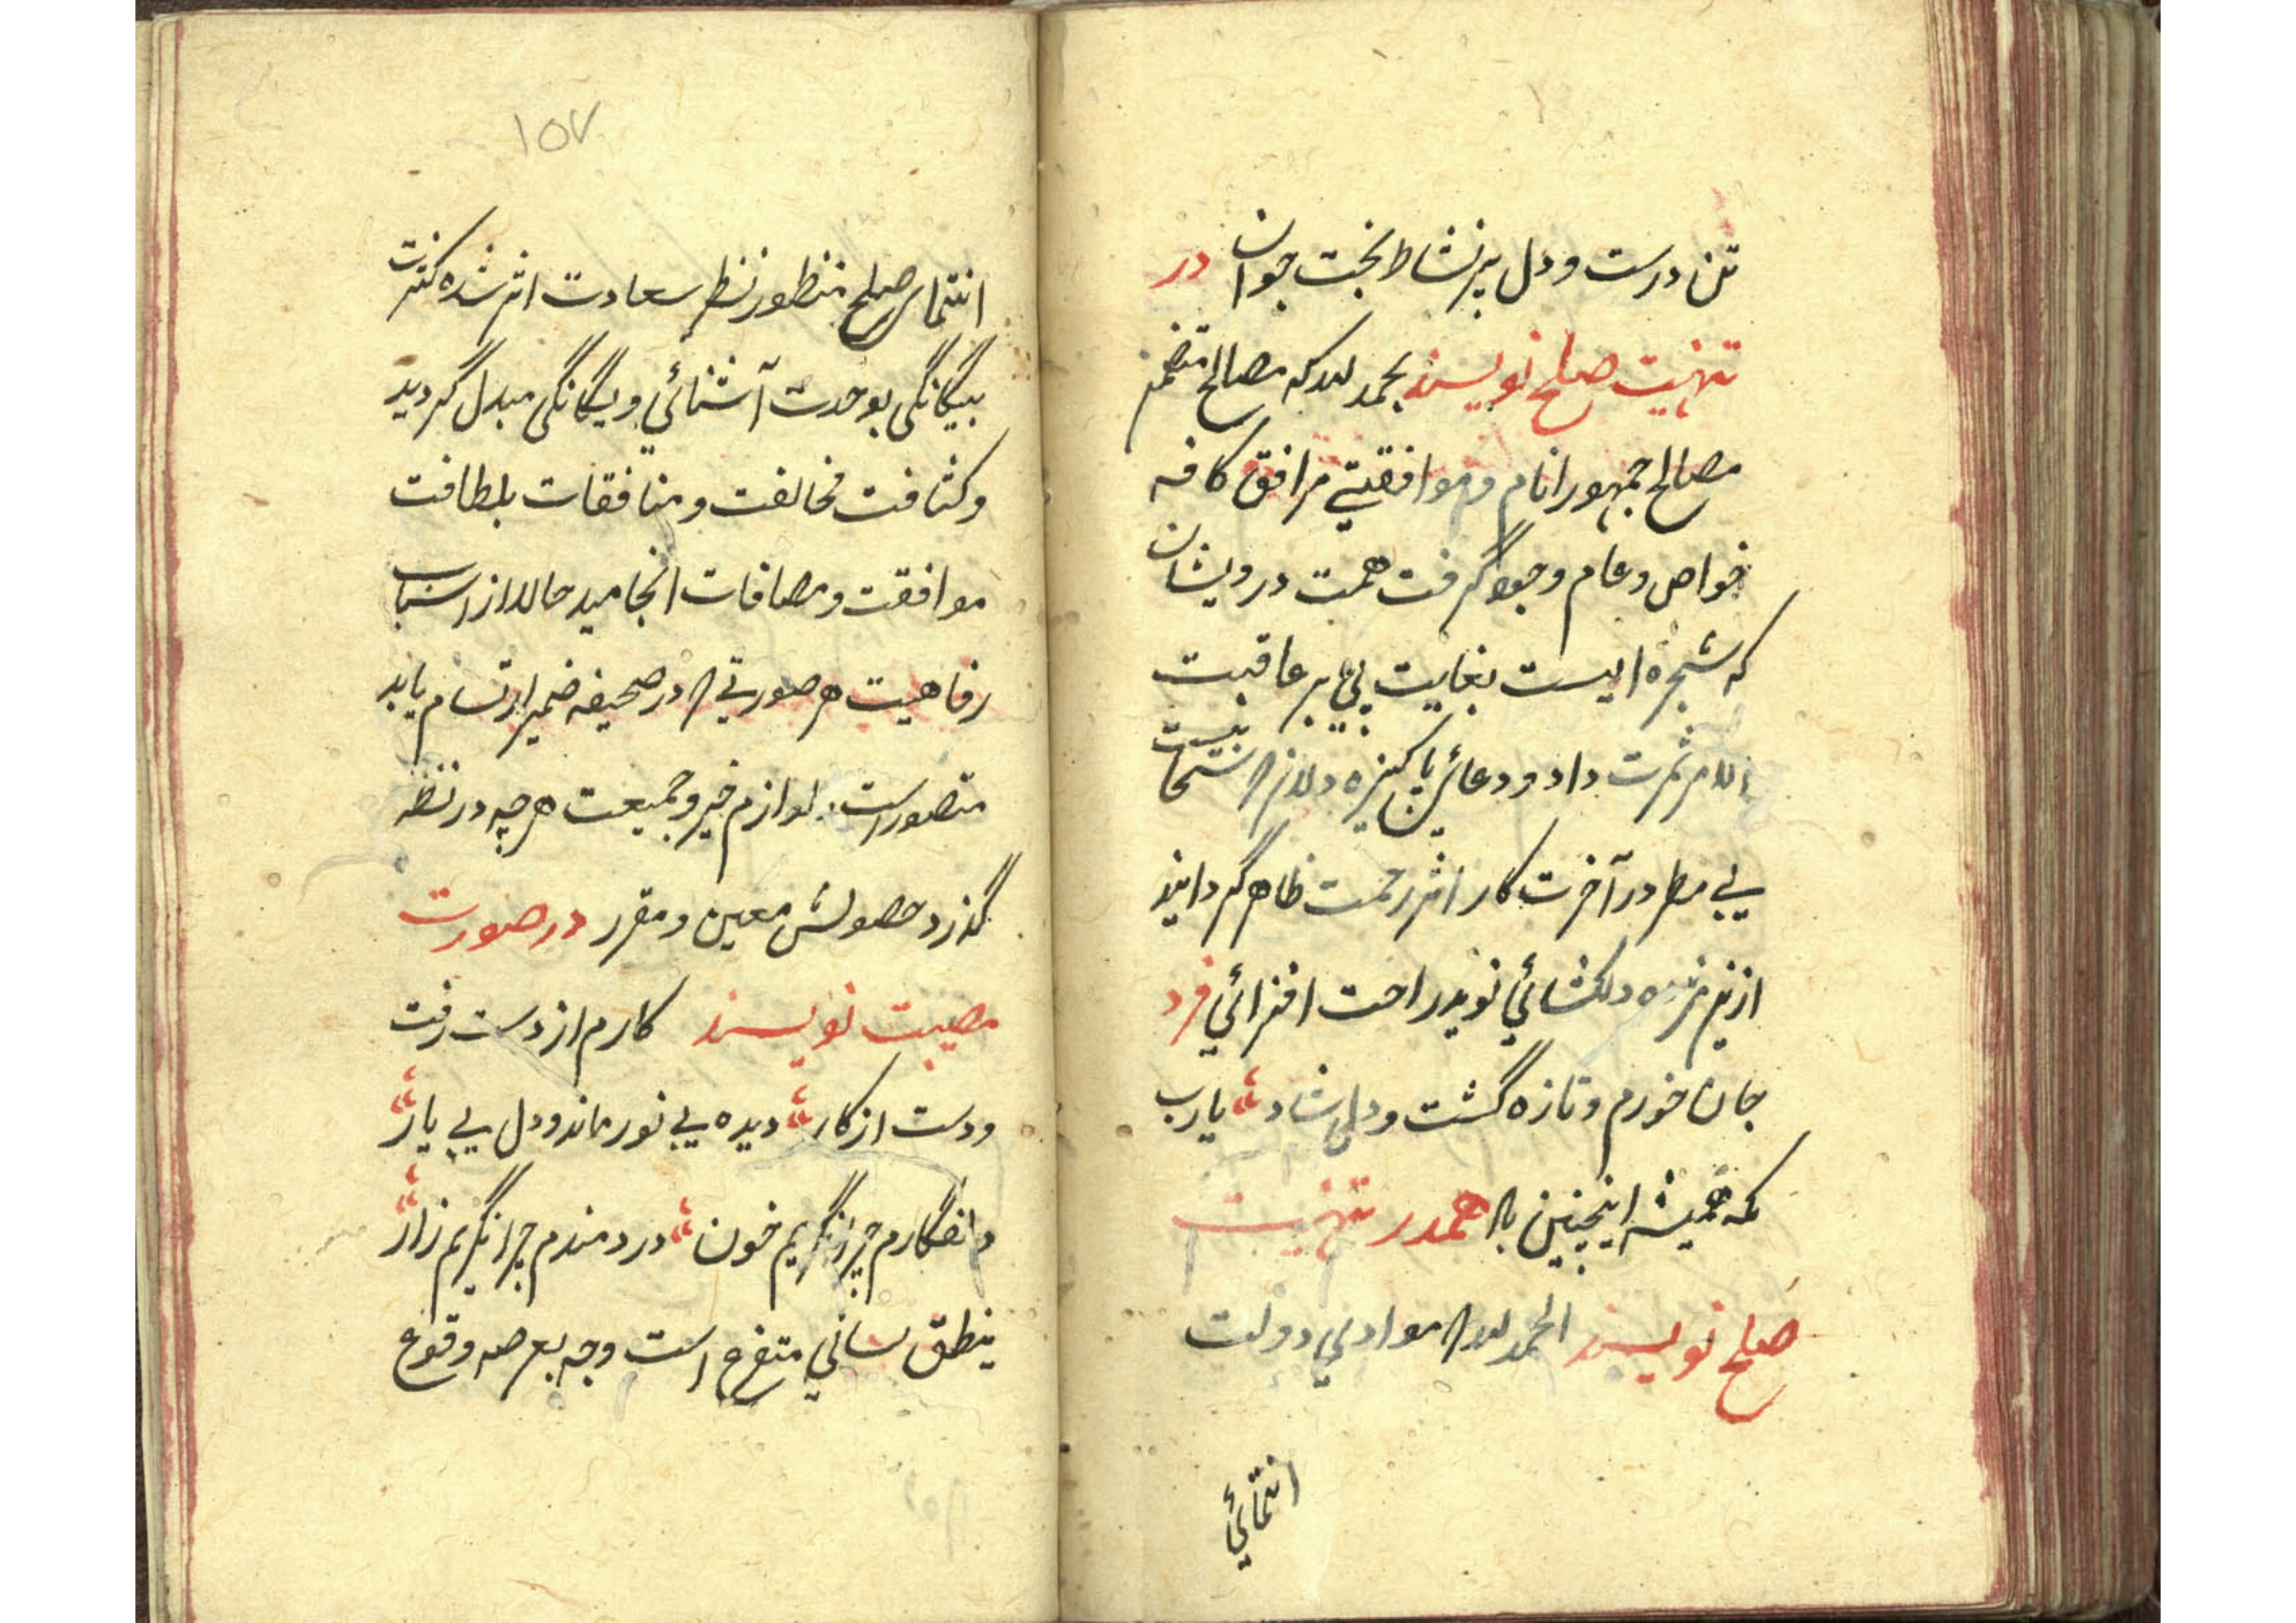 تن درست و دل پر نشاط بخت جوان در
تهنیت صلح نویسند بحمد لله که مصالح متضمن
مصالح جمهور انام و موافقتی مرافق کافه
خواص و عام وجود گرفت همت درویشان
که شجره ایست بغایت پی بر عاقبت
الامر ثمرت داد و دعائی پاکیزه
بی مطر در آخرت کار اثر رحمت ظاهر گردانید
ازین مژده دلکشائی نوید راحت افزائی فرد
جان خورم و تازه گشت و دل شاد یارب
که همیشه اینچنین باد هم در تهنیت
صلح نویسند الحمد لله که موادبی دولت
انتمائی
۱۵۷
انتمائی صلح منظور نظر سعادت اثر شده کثرت
بیگانگی بوحدت آشنائی و یگانگی مبدل گردید
و کثافت مخالفت و منافقات بلطافت
موافقت و مصافات انجامید حالا از اسباب
رفاهیت هر صورتی که در صحیفه ضمیر ارتسام یابد
متصور است و لوازم خیر و جمیعت هر چه در نظر
گذرد حصولش معین و مقرر در صورت
مصیبت نویسند کارم از دست رفت
و دست از کار دیده بی نور ماند و دل بی یار
دلفگارم چرا نگریم خون دردمندم چرا نگریم زار
بنطق لسانی متفرع است وجه بعرصه وقوع